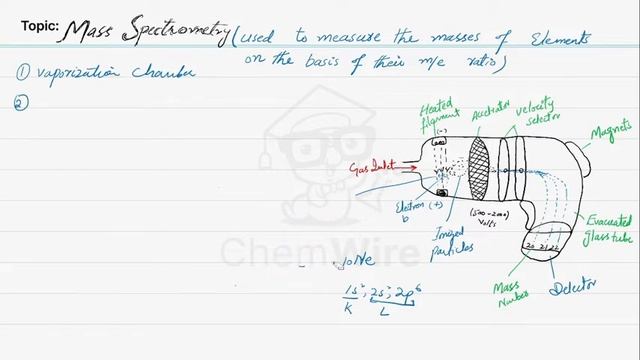 Topic: Mass Spectrometry (used to measure the masses of Elements
on the basis of their m/e ratio)
① vaporization chamber
②
Heated filament
(-)
Accelrator
velocity selector
Magnets
Gas Inlet
Electron (+)
b
Ionized Particles
(500-2000) Volts
Evacuated glass tube
20 21 22
Mass Number
Detector
ChemWire
10Ne
1s², 2s², 2p⁶
K L